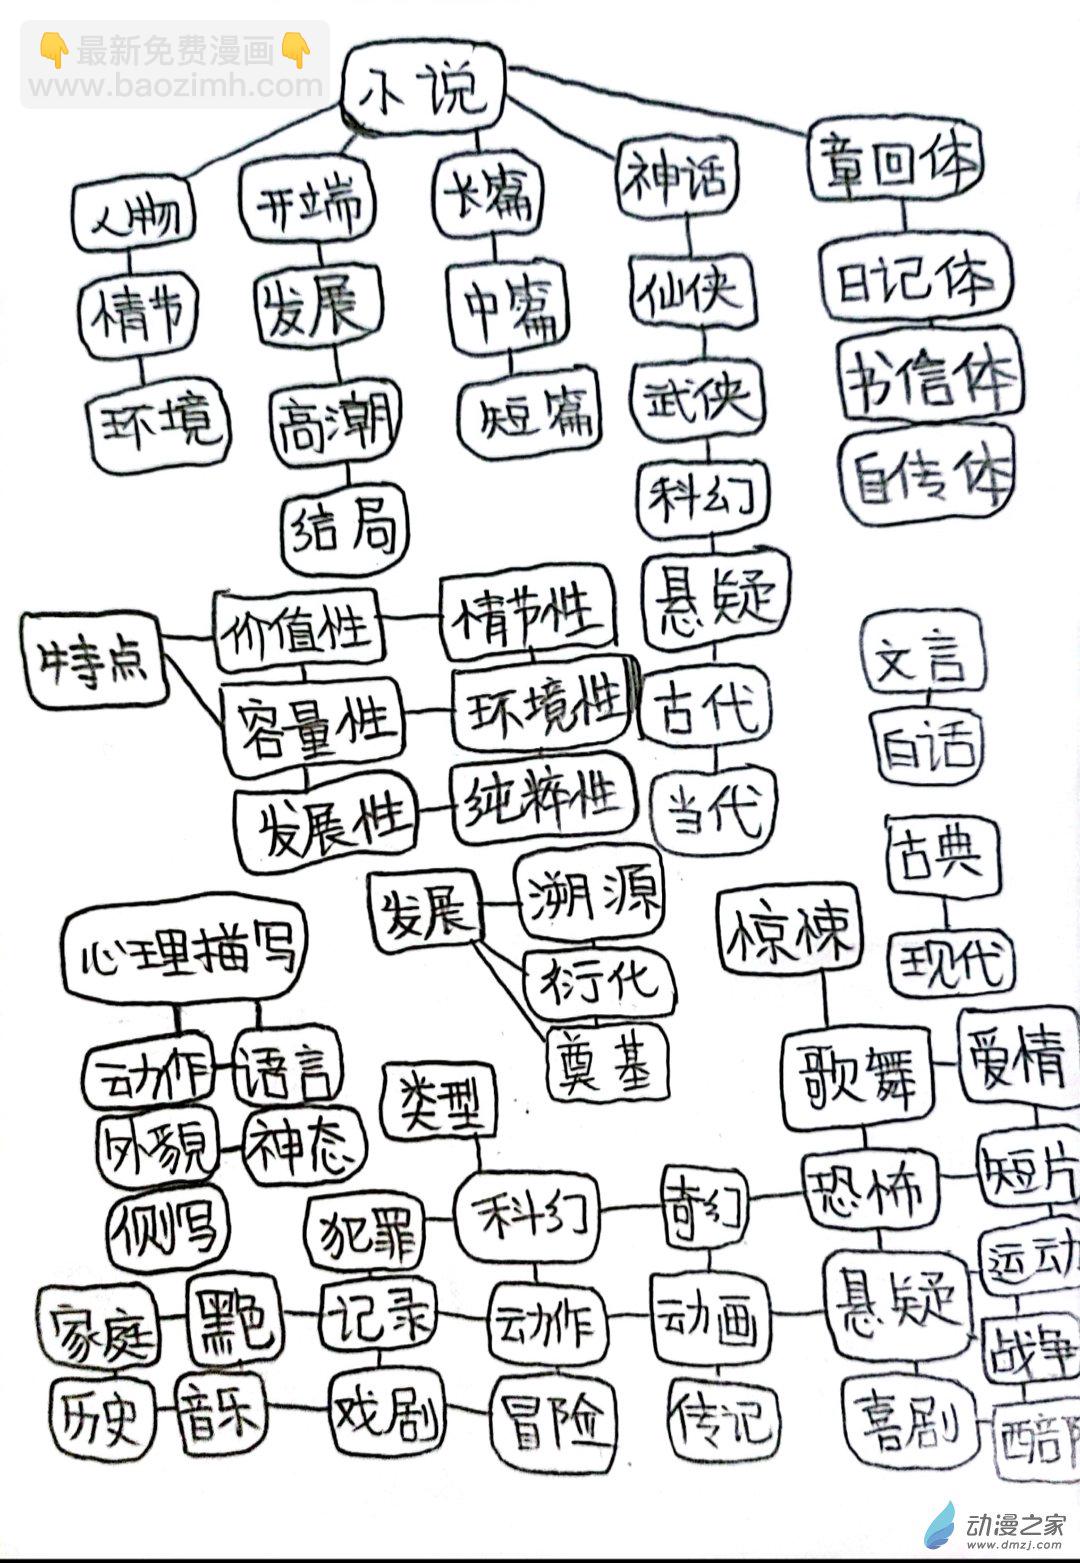 最新免费漫画
www.baozimh.com
小说
人物
开端
长篇
神话
章回体
情节
发展
中篇
仙侠
日记体
环境
高潮
短篇
武侠
书信体
结局
科幻
自传体
悬疑
古代
当代
特点
价值性
情节性
容量性
环境性
发展性
纯粹性
文言
白话
古典
现代
发展
溯源
衍化
奠基
心理描写
动作
语言
外貌
神态
侧写
类型
惊悚
歌舞
爱情
犯罪
科幻
奇幻
恐怖
短片
家庭
黑色
记录
动作
动画
悬疑
运动
战争
历史
音乐
戏剧
冒险
传记
喜剧
西部
动漫之家
www.dmzj.com